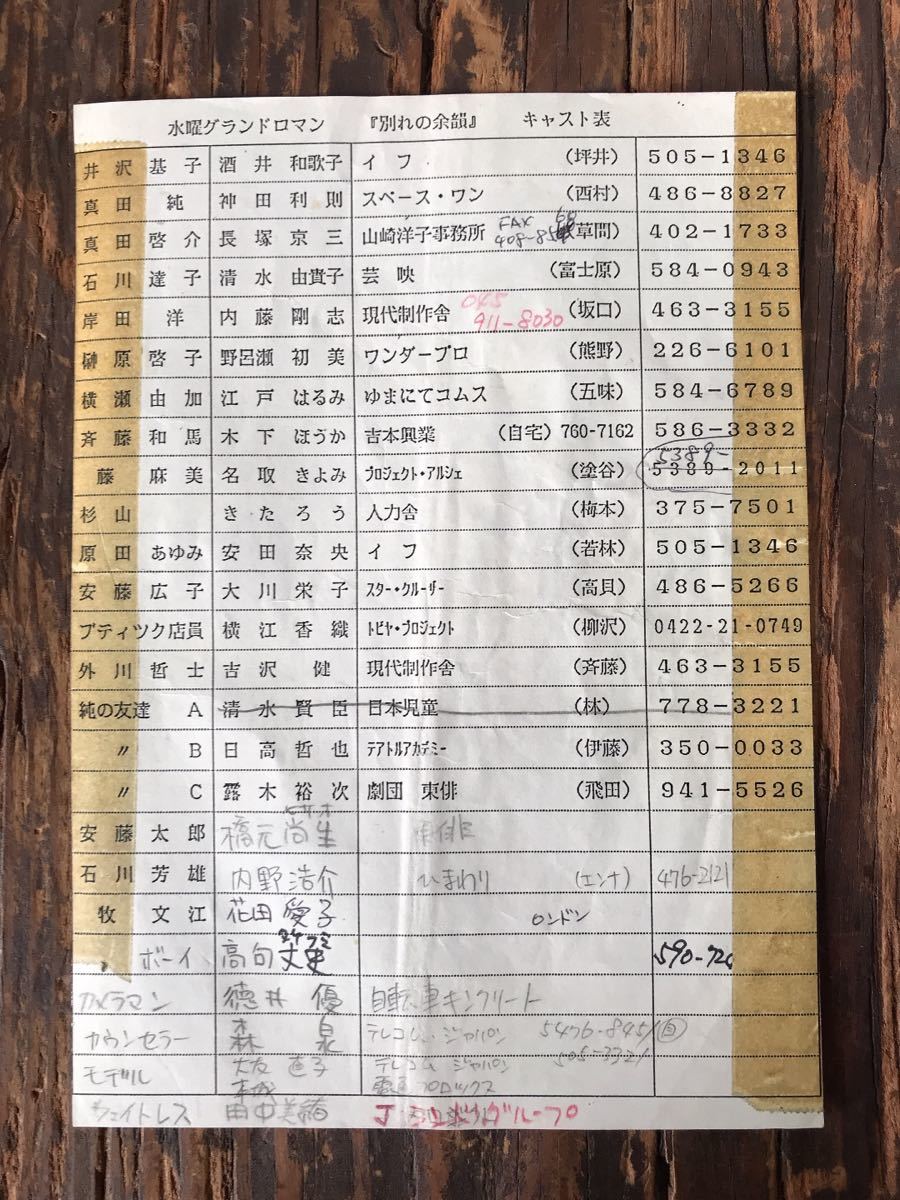 水曜グランドロマン 『別れの余韻』 キャスト表
井沢 基子 酒井 和歌子 イフ (坪井) 505-1346
真田 純 神田 利則 スペース・ワン (西村) 486-8827
FAX
真田 啓介 長塚 京三 山崎洋子事務所 (草間) 402-1733
石川 達子 清水 由貴子 芸映 (富士原) 584-0943
045
岸田 洋 内藤 剛志 現代制作舎 911-8030 (坂口) 463-3155
榊原 啓子 野呂瀬 初美 ワンダープロ (熊野) 226-6101
横瀬 由加 江戸 はるみ ゆまにてコムス (五味) 584-6789
斉藤 和馬 木下 ほうか 吉本興業 (自宅) 760-7162 586-3332
5389-
藤 麻美 名取 きよみ プロジェクト・アルシェ (塗谷) 5389-2011
杉山 きたろう 人力舎 (梅本) 375-7501
原田 あゆみ 安田 奈央 イフ (若林) 505-1346
安藤 広子 大川 栄子 スター・クルーザー (高貝) 486-5266
ブティック店員 横江 香織 トビヤ・プロジェクト (柳沢) 0422-21-0749
外川 哲士 吉沢 健 現代制作舎 (斉藤) 463-3155
純の友達 A 清水 賢臣 日本児童 (林) 778-3221
〃 B 日高 哲也 テアトルアカデミー (伊藤) 350-0033
〃 C 露木 裕次 劇団 東俳 (飛田) 941-5526
安藤 太郎 橋元 尚生 東俳
石川 芳雄 内野浩介 ひまわり (エンナ) 476-2121
牧 文江 花田 愛子 ロンドン
ボーイ 高旬 丈史 590-72
カメラマン 徳井 優 自転車キンクリート
カウンセラー 森 泉 テレコム・ジャパン 5476-8451
505-3321
モデル 大友 直子 テレコム ジャパン
ウェイトレス 田中美緒